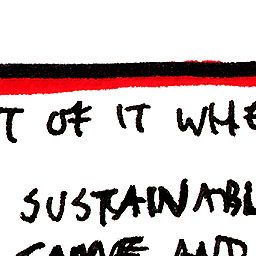 T OF IT WHE
SUSTAINABL
AND